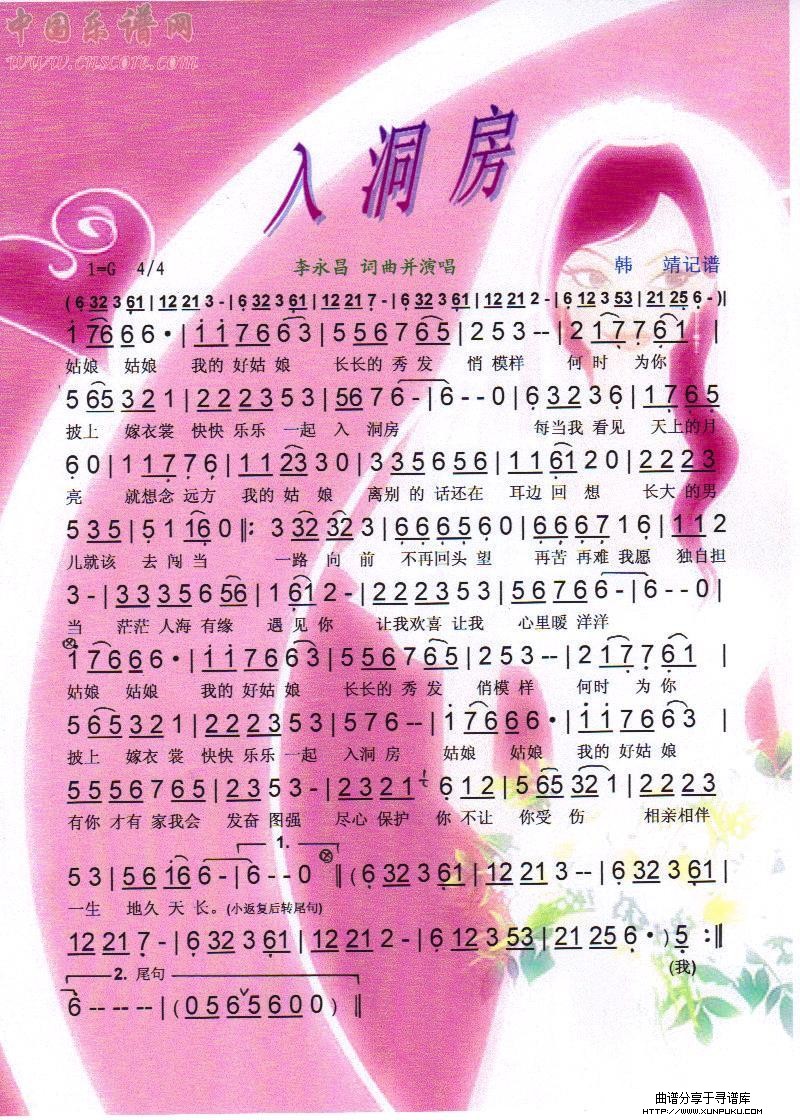 中国乐谱网
www.cnscore.com
入洞房
1=G 4/4 李永昌 词曲并演唱 韩 靖记谱
( 6 32 3 61 | 12 21 3 - | 6 32 3 61 | 12 21 7 - | 6 32 3 61 | 12 21 2 - | 6 12 3 53 | 21 25 6 - )|
1 76 6 6 · | 1 1 7 6 6 3 | 5 5 6 7 6 5 | 2 5 3 - - | 2 1 7 7 6 1 |
姑娘 姑娘 我的 好姑 娘 长长的 秀 发 悄 模样 何 时 为你
5 65 3 2 1 | 2 2 2 3 5 3 | 56 7 6 - | 6 - - 0 | 6 3 2 3 6 | 1 7 6 5
披上 嫁衣裳 快快 乐乐 一起 入 洞房 每当我 看见 天上的月
6 0 | 1 1 7 7 6 | 1 1 23 3 0 | 3 3 5 6 5 6 | 1 1 61 2 0 | 2 2 2 3
亮 就想念 远方 我的 姑 娘 离别 的 话还在 耳边 回 想 长大 的男
5 3 5 | 5 1 16 0 ‖: 3 32 32 3 | 6 6 6 5 6 0 | 6 6 6 7 1 6 | 1 1 2
儿就该 去 闯 当 一路 向 前 不再回头 望 再苦 再难 我愿 独自担
3 - | 3 3 3 5 6 56 | 1 61 2 - | 2 2 2 3 5 3 | 5 6 7 6 6 - | 6 - - 0 |
当 茫茫 人海 有缘 遇 见 你 让我欢喜 让我 心里暖 洋洋
1 76 6 6 · | 1 1 7 6 6 3 | 5 5 6 7 6 5 | 2 5 3 - - | 2 1 7 7 6 1 |
姑娘 姑娘 我的 好姑 娘 长长的 秀 发 悄模 样 何时 为 你
5 65 3 2 1 | 2 2 2 3 5 3 | 5 7 6 - - | 1 76 6 6 · | 1 1 7 6 6 3 |
披上 嫁衣 裳 快快 乐乐 一起 入洞 房 姑娘 姑娘 我的 好姑 娘
5 5 5 6 7 6 5 | 2 3 5 3 - | 2 3 2 1 6 1 2 | 5 65 32 1 | 2 2 2 3
有你 才有 家我会 发奋 图强 尽心 保护 你 不让 你受 伤 相亲相伴
1.
5 3 | 5 6 16 6 - | 6 - - 0 ‖ ( 6 32 3 61 | 12 21 3 - - | 6 32 3 61 |
一生 地久 天 长。(小返复后转尾句)
12 21 7 - | 6 32 3 61 | 12 21 2 - | 6 12 3 53 | 21 25 6 · ) 5 :‖
(我)
2. 尾句
6 - - - - | ( 0 5 6 5 6 0 0 ) ‖
曲谱分享于寻谱库
HTTP://WWW.XUNPUKU.COM